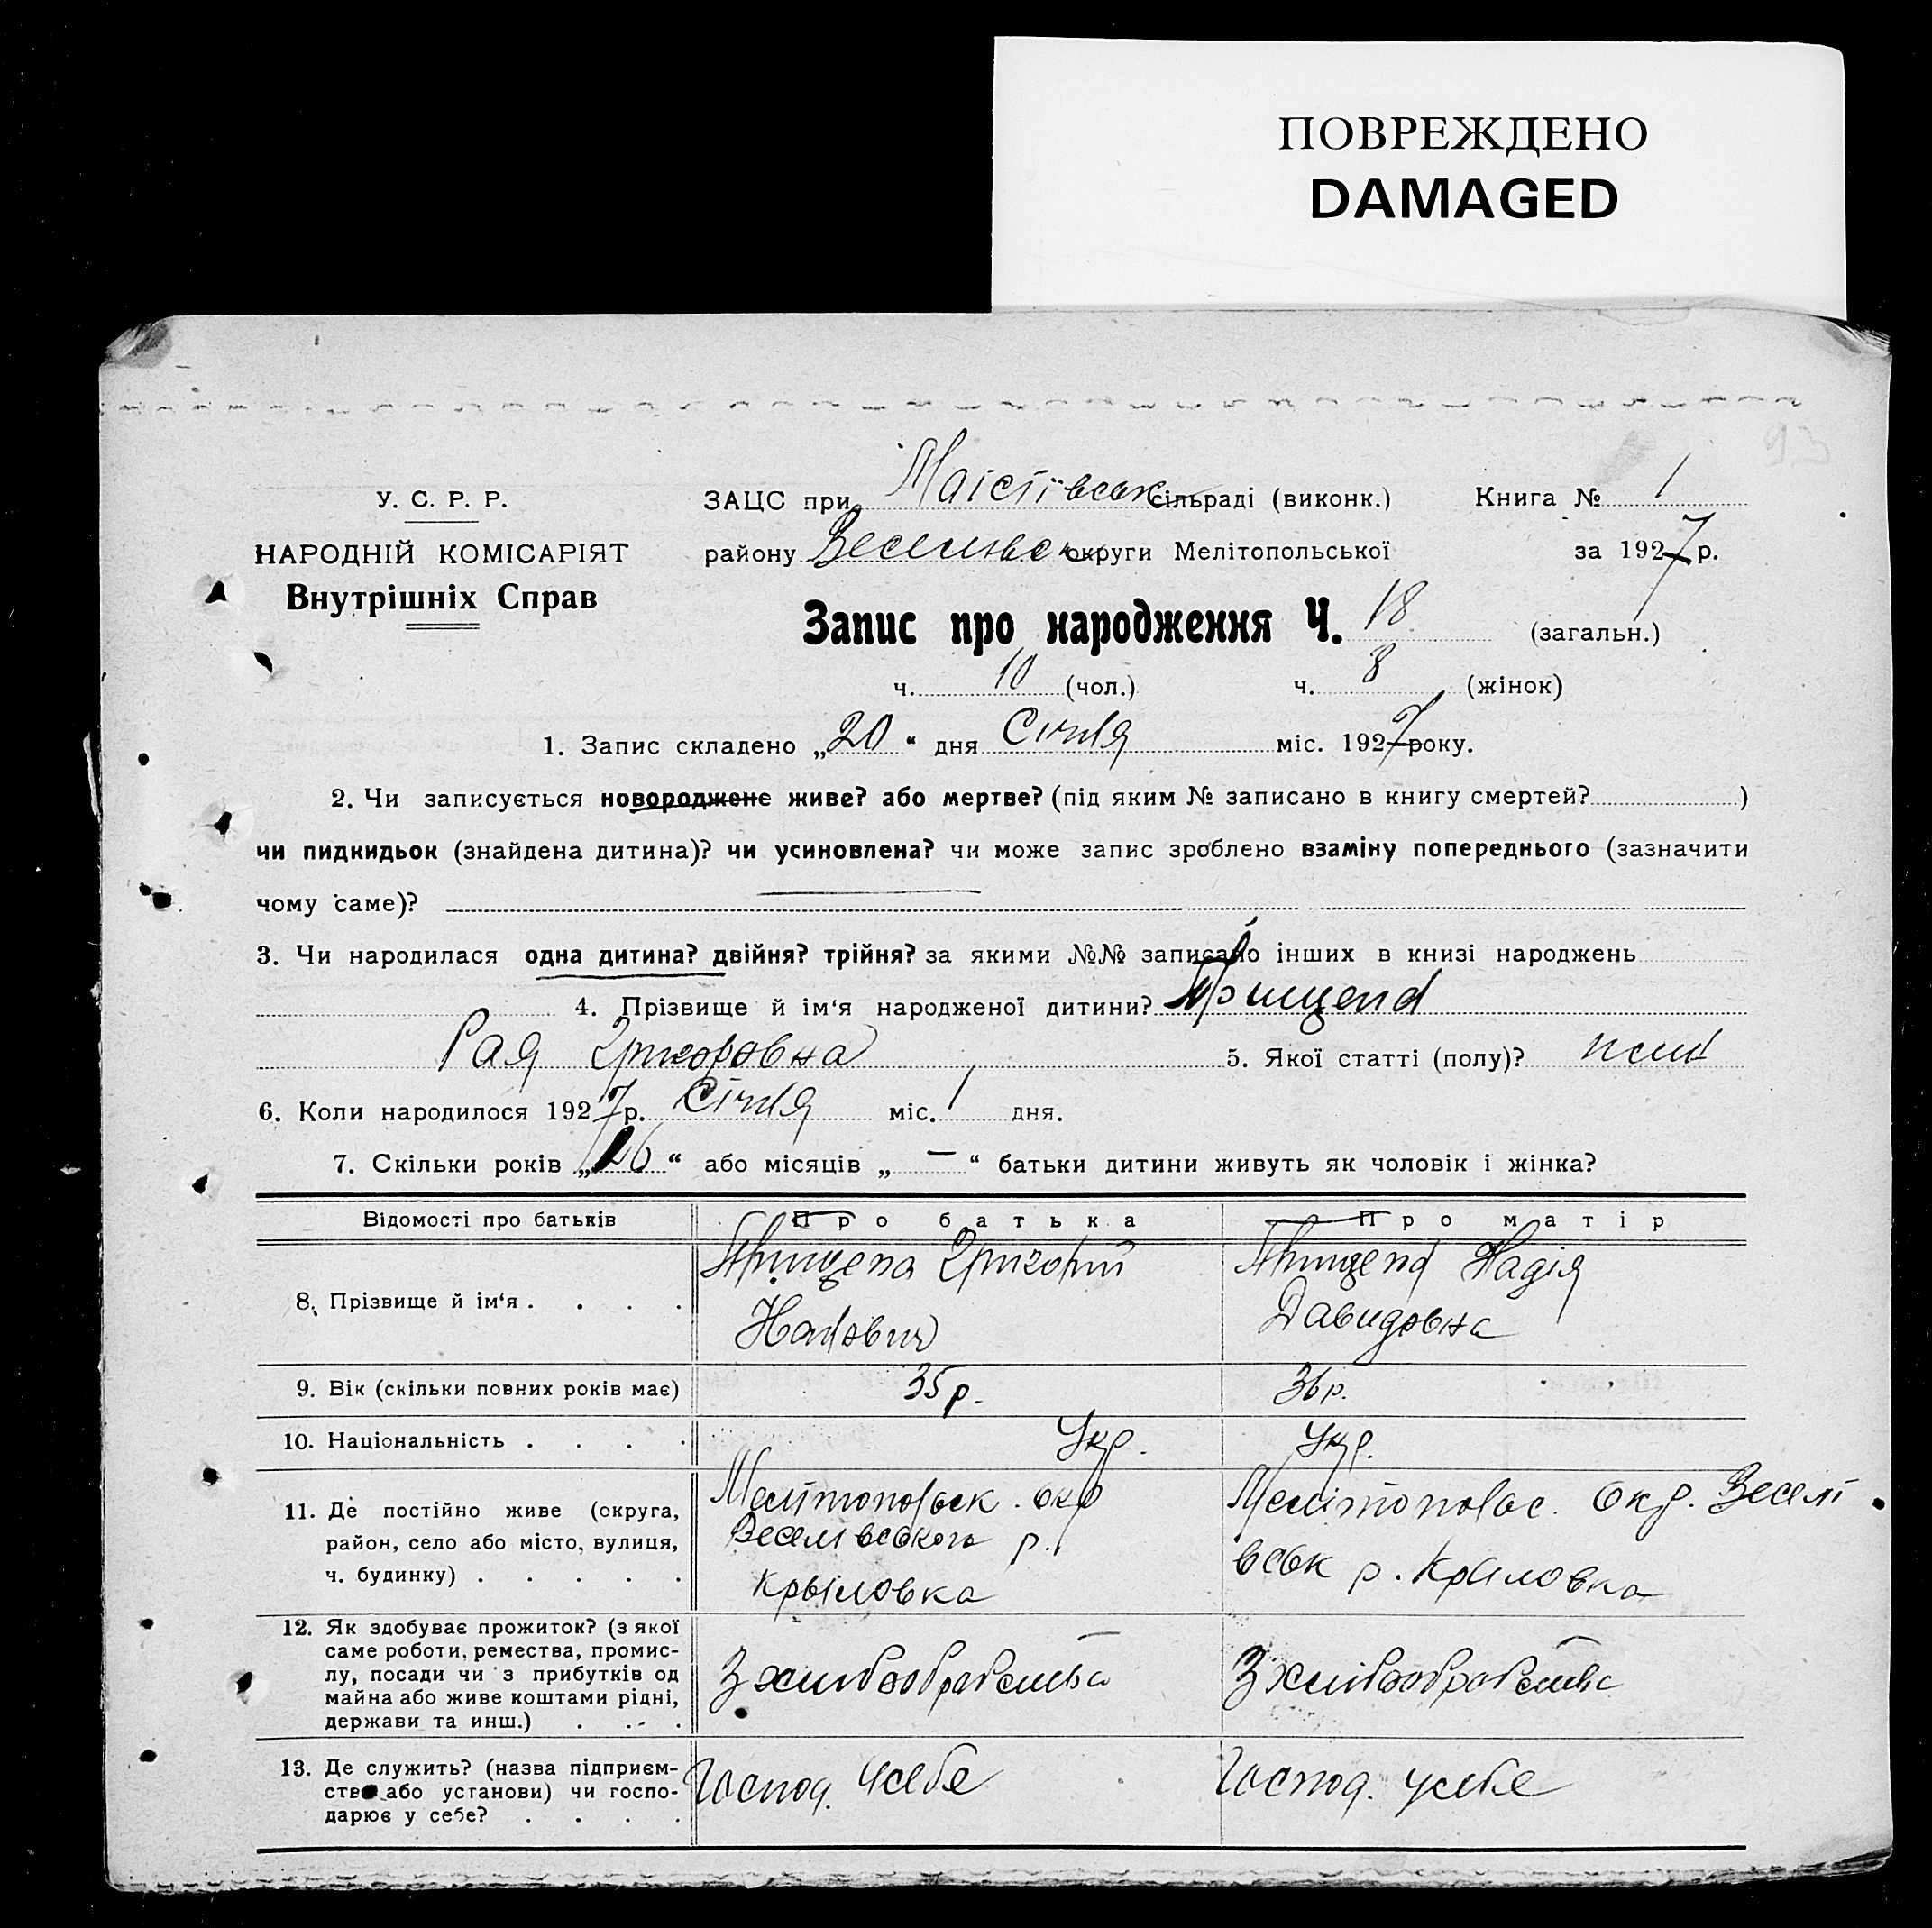 ПОВРЕЖДЕНО
DAMAGED
У. С. Р. Р.
НАРОДНІЙ КОМІСАРІЯТ
Внутрішніх Справ
ЗАЦС при сільраді (виконк.) Книга № 1
району округи Мелітопольської за 1927 р.
Запис про народження Ч. 18 (загальн.)
ч. 10 (чол.) ч. 8 (жінок)
1. Запис складено „20“ дня Січня міс. 1927 року.
2. Чи записується новороджене живе? або мертве? (під яким № записано в книгу смертей? )
чи пидкидьок (знайдена дитина)? чи усиновлена? чи може запис зроблено взаміну попереднього (зазначити
чому саме)?
3. Чи народилася одна дитина? двійня? трійня? за якими №№ записано інших в книзі народжень
4. Прізвище й ім‘я народженої дитини? Прищепа
Рая Григоровна 5. Якої статті (полу)?
6. Коли народилося 1927 р. Січня міс. 1 дня.
7. Скільки років „ “ або місяців „ — “ батьки дитини живуть як чоловік і жінка?
Відомості про батьків Про батька Про матір
8. Прізвище й ім‘я . . . . Прищепа Григорій Прищепа Надія
Давидовна
9. Вік (скільки повних років має) 35 р. 36 р.
10. Національність . . . . Укр. Укр.
11. Де постійно живе (округа, район, село або місто, вулиця, ч. будинку) . . . . . Мелітопольск. окр Мелітопольс. Окр. Веселі
Веселівського р. вськ р. Крыловка
Крыловка
12. Як здобуває прожиток? (з якої
саме роботи, ремества, промис-
лу, посади чи з прибутків од
майна або живе коштами рідні,
держави та инш.) . . . . З хліборобства З хліборобства
13. Де служить? (назва підприєм-
ства або установи) чи госпо-
дарює у себе? . . . . Господ. у себе Господ. у себе